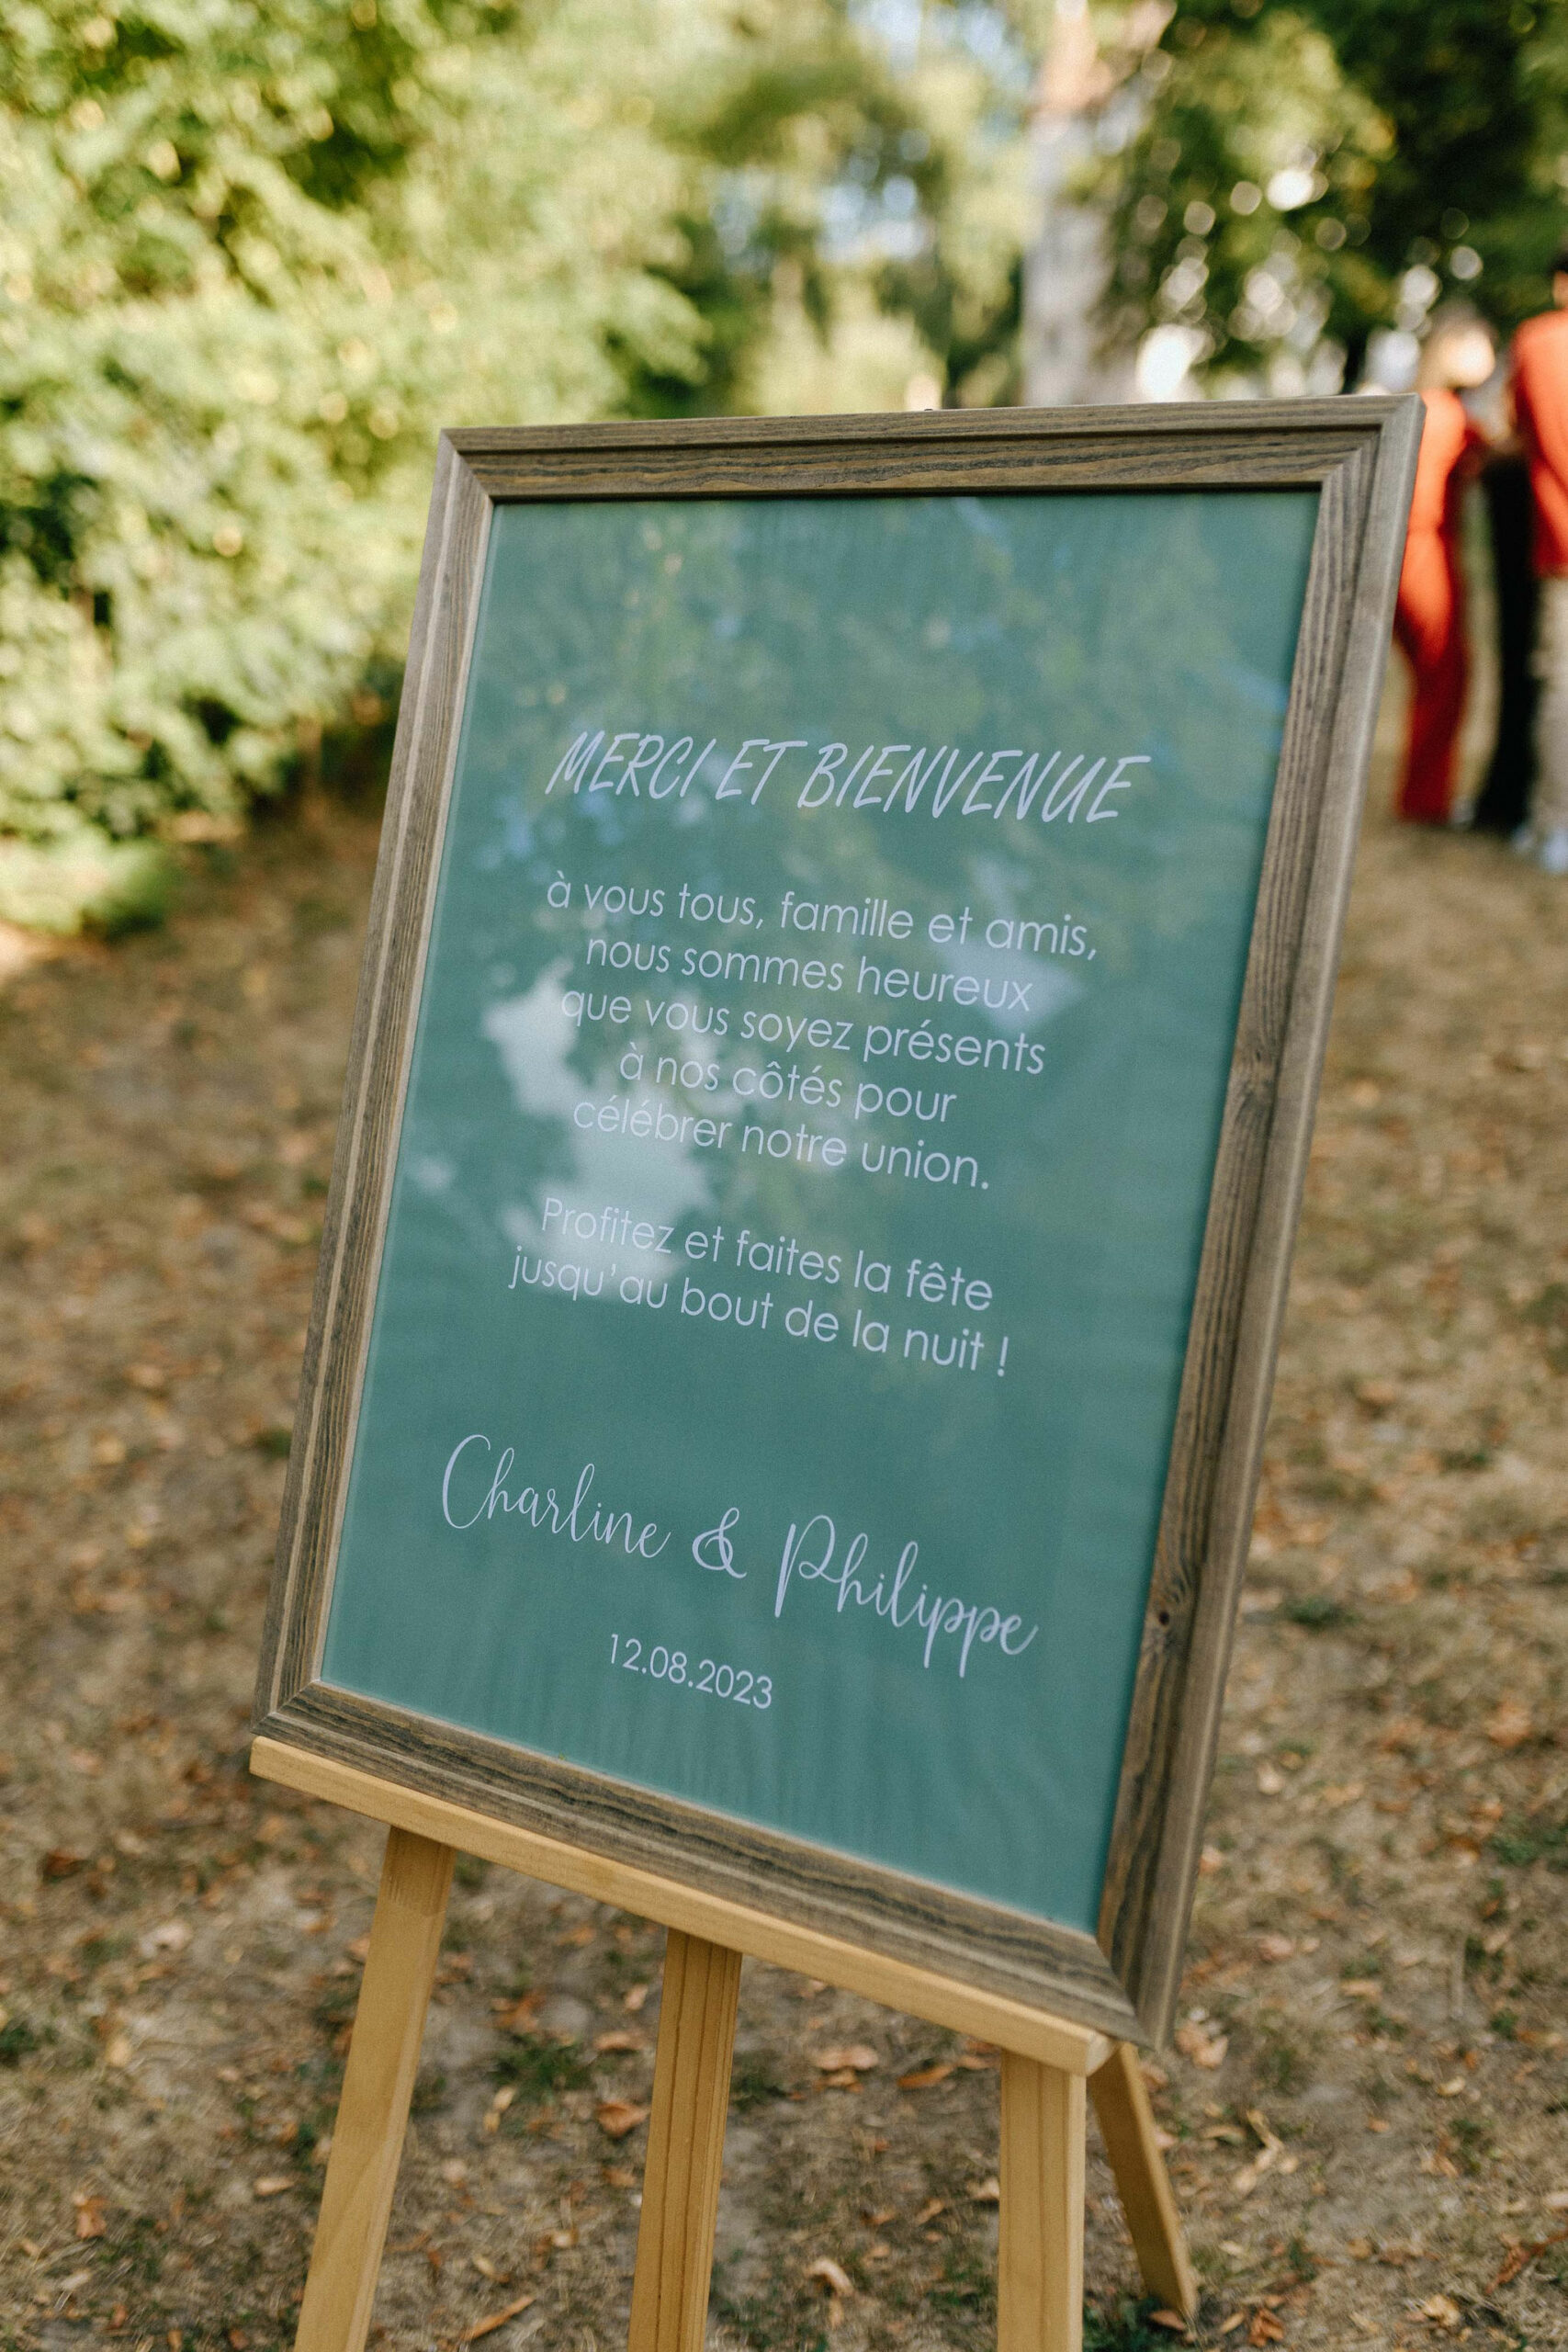 MERCI ET BIENVENUE
à vous tous, famille et amis,
nous sommes heureux
que vous soyez présents
à nos côtés pour
célébrer notre union.
Profitez et faites la fête
jusqu'au bout de la nuit !
Charline & Philippe
12.08.2023